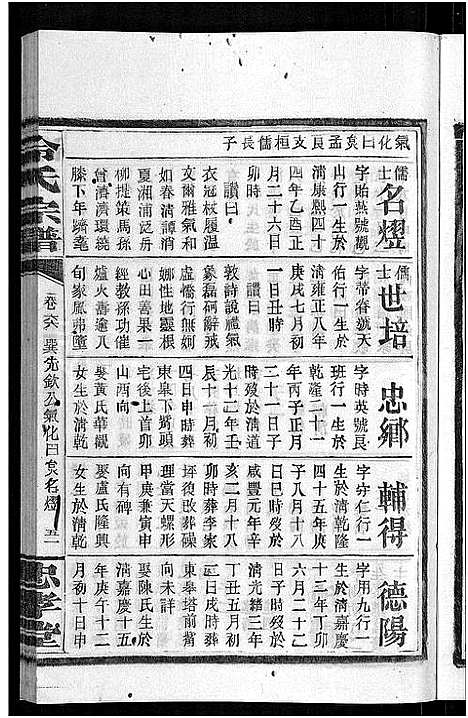 氣化曰矣孟良支桓儒長子
儒士名燈
字貽燕號觀
山行一生於
淸康熙四十
四年乙酉正
月二十六日
卯時
讚曰
衣冠杖履溫
文爾雅氣和
如春淸譚消
夏湘浦泛舟
柳堤策馬孫
曾濟濟環繞
膝下年躋耄
儒士世培
字蒂春號天
佑行一生於
淸雍正八年
庚戌七月初
一日丑時
讚曰
敦詩說禮氣
象磊砢辭戒
虛憍行無婀
娜性地靈根
心田善果一
經教孫功催
爐火壽逾八
旬家風弗墮
忠鄉
字時英號良
班行一生於
乾隆二十一
年丙子正月
二十一日子
時歿於淸道
光十二年壬
辰十一月初
四日申時葬
東皋下嶺頭
宅後上首卯
山酉向
娶黃氏華觀
女生於淸乾
輔得
字守仁行一
生於淸乾隆
四十五年庚
子八月十八
日巳時歿於
咸豐元年辛
亥二月十八
卯時葬李家
坪復改葬磉
理當天螺形
甲庚兼寅申
向有碑
娶盧氏隆興
女生於淸乾
德陽
字用九行一
生於淸嘉慶
十二年丁卯
六月二十二
日子時歿於
淸光緒三年
丁丑五月初
二日戌時葬
東皋塔前觜
向未詳
娶陳氏生於
淸嘉慶十五
年庚午十二
月初十日申
冷氏宗譜
巽先欽公氣化曰矣名燈
忠孝堂